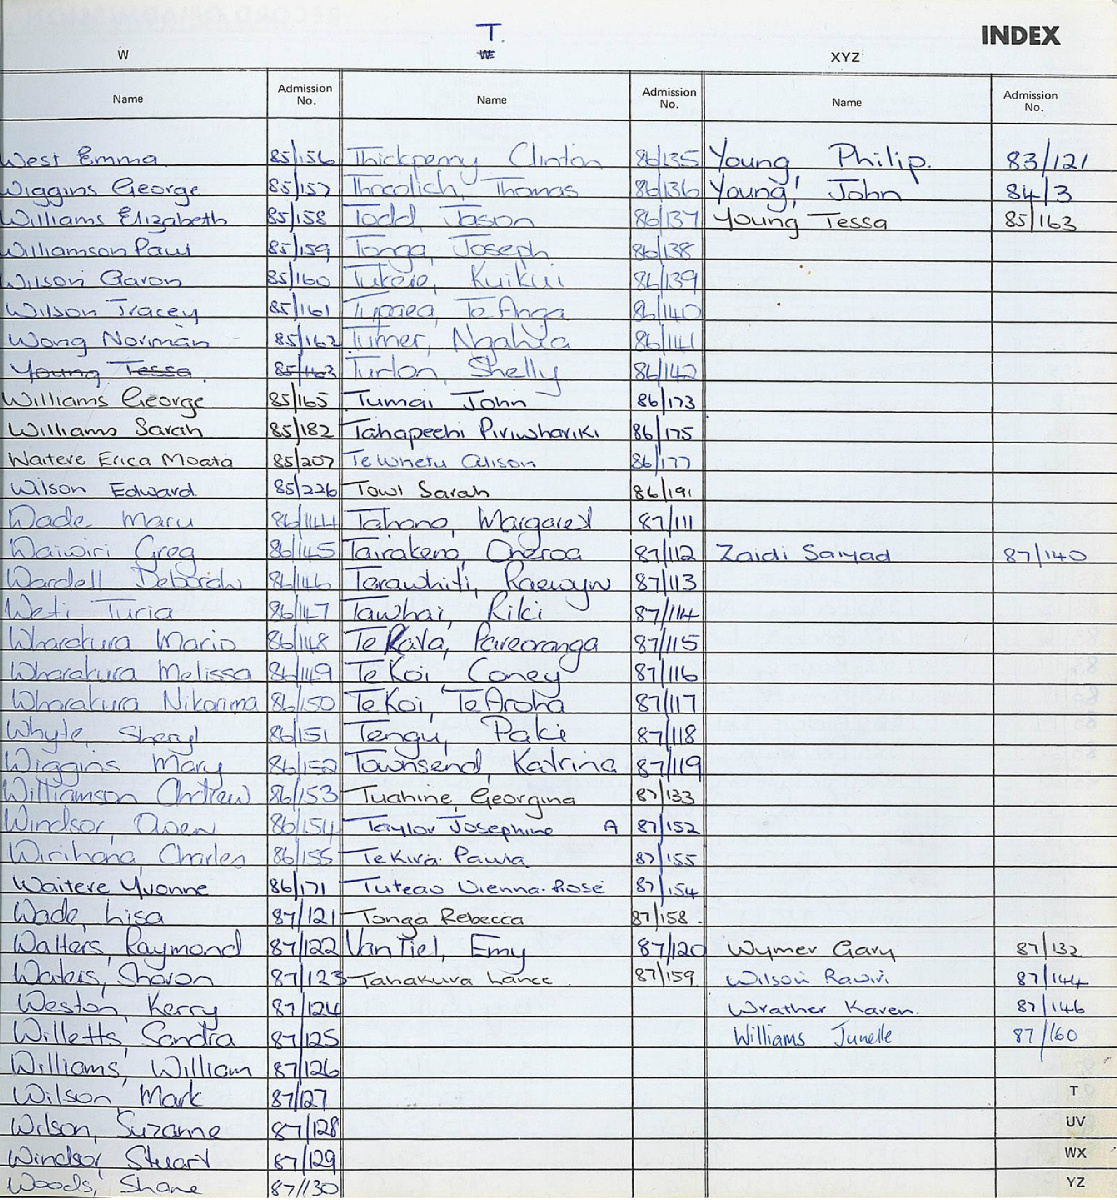 T.
INDEX
W WE XYZ
Name Admission No. Name Admission No. Name Admission No.
West Emma 85/156 Thickpenny Clinton 86/135 Young Philip. 83/121
Wiggins George 85/157 Thocolich, Thomas 86/136 Young, John 84/3
Williams Elizabeth 85/158 Todd, Jason 86/137 Young Tessa 85/163
Williamson Paul 85/159 Tonga, Joseph 86/138
Wilson Garon 85/160 Kuikui 86/139
Wilson Tracey 85/161 Tupaea, Te Anga 86/140
Wong Norman 85/162 Turner, Ngahuia 86/141
Young Tessa 85/163 Turlon, Shelly 86/142
Williams George 85/165 Tumai John 86/173
Williams Sarah 85/182 Tahapeehi Piriwhariki 86/175
Waitere Erica Moata 85/207 Te Whetu Alison 86/177
Wilson Edward 85/226 Towl Sarah 86/191
Wade Mary 86/144 Tahana, Margaret 87/111
Waiwiri Greg 86/145 Tairakena, 87/112 Zaidi Saiyad 87/140
Wardell Deborah 86/146 Tarawhiti, Raewyn 87/113
Weti Turia 86/147 Tawhai, Riki 87/114
Wharakura Mario 86/148 Te Kawa, Pareoranga 87/115
Wharakura Melissa 86/149 Te Koi, Coney 87/116
Wharakura Nikorima 86/150 Te Koi, Te Aroha 87/117
Whyle, Sheryl 86/151 Tengu, Paki 87/118
Wiggins Mary 86/152 Townsend, Katrina 87/119
Williamson Andrew 86/153 Tuahine, Georgina 87/133
Windsor, Owen 86/154 Taylor Josephine A 87/152
Wirihana, Charlen 86/155 Te Kira. Pawla 87/155
Waitere Yvonne 86/171 Tuteao Vienna-Rose 87/154
Wade, Lisa 87/121 Tonga Rebecca 87/158
Walters, Raymond 87/122 Van Tiel, Emy 87/120 Wymer Gary 87/132
Waters, Sharon 87/123 Tahakura Lance 87/159 Wilson Rawiri 87/144
Weston, Kerry 87/124 Wrather Karen. 87/146
Willetts, Sandra 87/125 Williams Junelle 87/160
Williams, William 87/126
Wilson Mark 87/127 T
Wilson, Suzanne 87/128 UV
Windsor, Stuart 87/129 WX
Woods, Shane 87/130 YZ